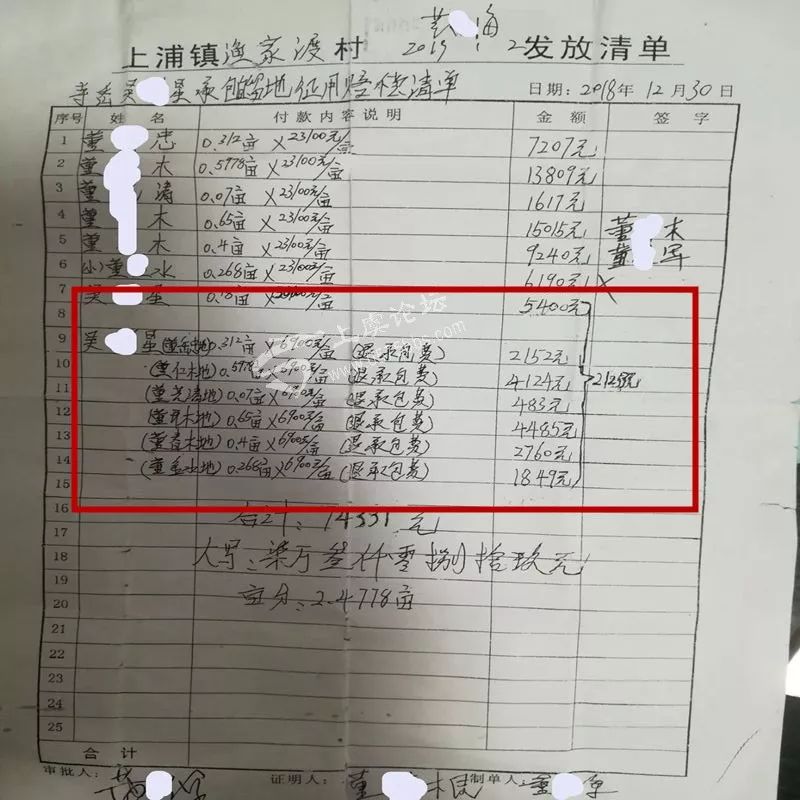 上浦镇渔家渡村 发放清单
承包地征用赔偿清单 日期:2018年12月30日
序号 姓名 付款内容说明 金额 签字
1 董 忠 0.312亩×23100元/亩 7207元
2 董 木 0.5978亩×23100元/亩 13809元
3 董 涛 0.07亩×23100元/亩 1617元
4 董 木 0.65亩×23100元/亩 15015元 董 木
5 董 木 0.4亩×23100元/亩 9240元 董 军
6 (小)董 水 0.268亩×23100元/亩 6190元
7 吴 星 0.18亩× 元/亩 5400元
8
9 吴 星 0.312亩×6900元/亩 (退承包费) 2152元
10 (董仁木地) 0.5978 ×6900元/亩 (退承包费) 4124元
11 (董 涛地) 0.07亩×6900元/亩 (退承包费) 483元
12 (董 木地) 0.65亩×6900元/亩 (退承包费) 4485元
13 (董春木地) 0.4亩×6900元/亩 (退承包费) 2760元
14 (董金水地) 0.268亩×6900元/亩 (退承包费) 1849元
15
16 合计:74331元
17
18 大写:柒万叁仟零捌拾玖元
19
20 亩分:2.4778亩
21
22
23
24
25
合计
审批人: 证明人:董 根 制单人:董 军
上虞论坛